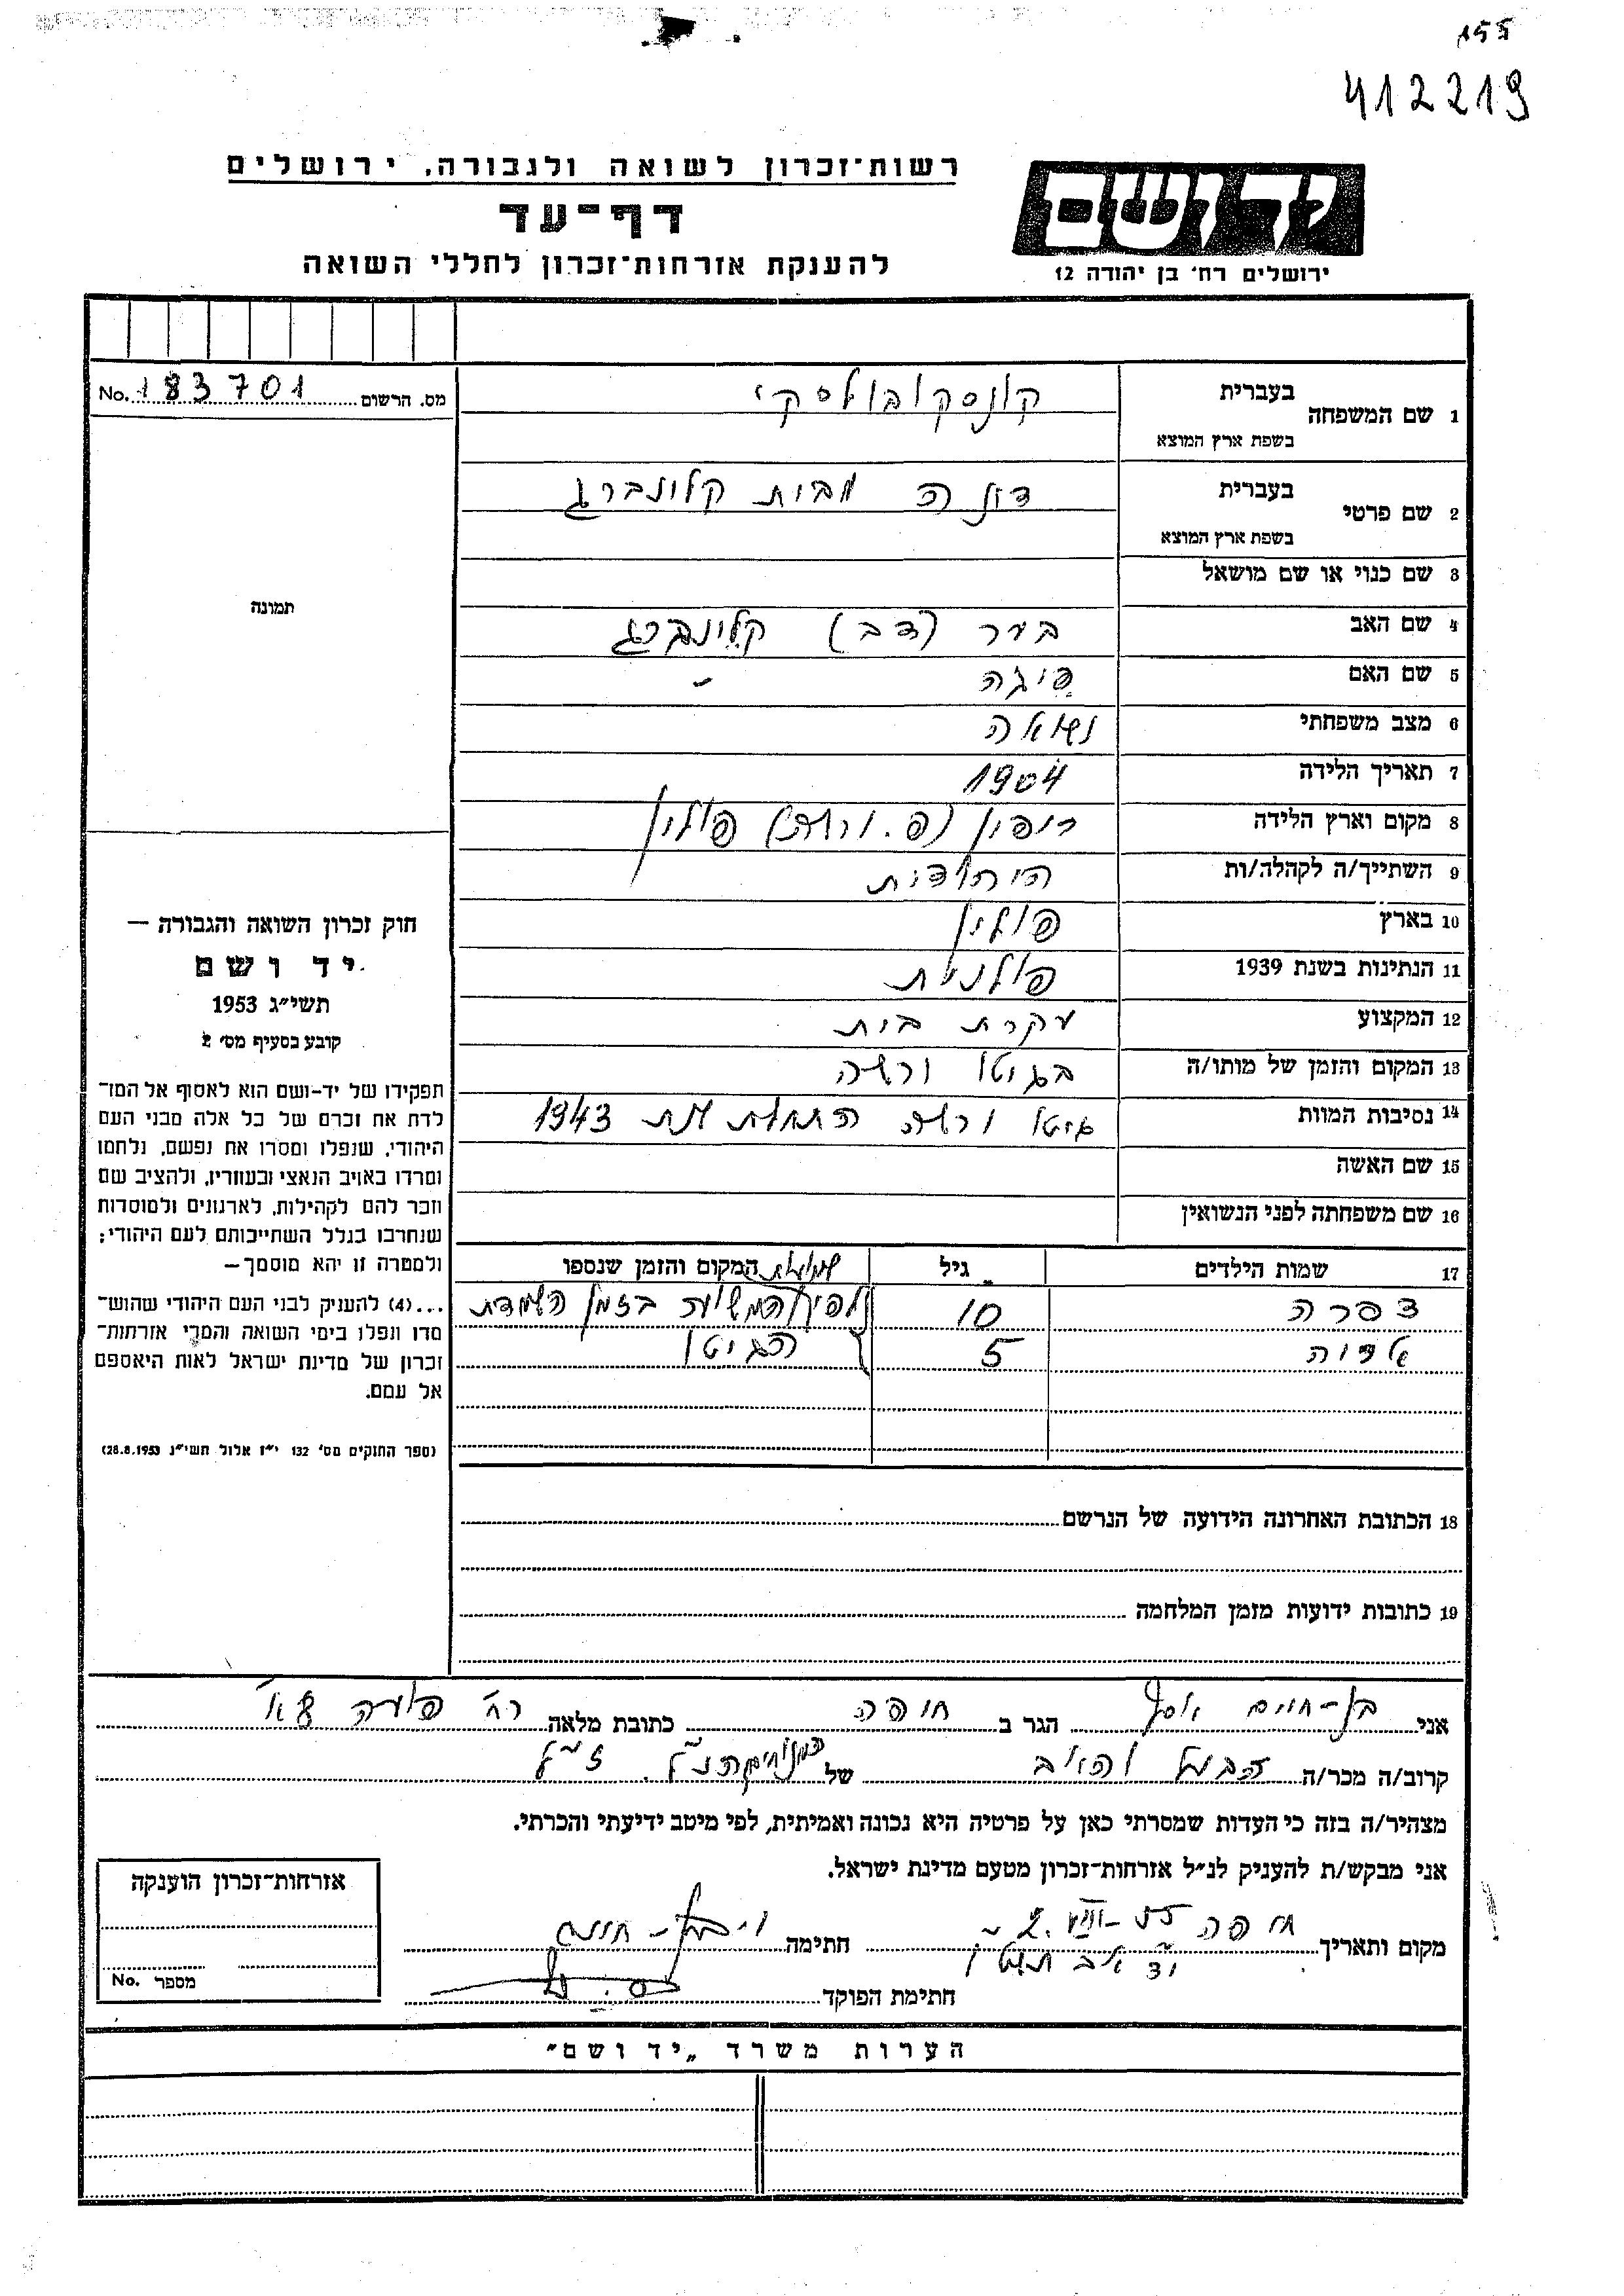 155
412219
יד ושם
ירושלים רח' בן יהודה 12
רשות-זכרון לשואה ולגבורה, ירושלים
דף-עד
להענקת אזרחות-זכרון לחללי השואה
מס. הרשום 183701 No.
1 שם המשפחה בעברית קונסקובולסקי
בשפת ארץ המוצא
2 שם פרטי בעברית דינה מבית קליינברג
בשפת ארץ המוצא
3 שם כנוי או שם מושאל
4 שם האב בער (דב) קליינברג
5 שם האם פיגה -
6 מצב משפחתי נשואה
7 תאריך הלידה 1904
8 מקום וארץ הלידה (פ. ורשה) פולין
9 השתייך/ה לקהלה/ות היהודית
10 בארץ פולין
11 הנתינות בשנת 1939 פולנית
12 המקצוע עקרת בית
13 המקום והזמן של מותו/ה בגיטו ורשה
14 נסיבות המוות גיטו ורשה התחלת שנת 1943
15 שם האשה
16 שם משפחתה לפני הנשואין
17 שמות הילדים גיל המקום והזמן שנספו
צפרה 10 לפי השמועה בזמן השמדת
אביבה 5 הגיטו
18 הכתובת האחרונה הידועה של הנרשם
19 כתובות ידועות מזמן המלחמה
תמונה
חוק זכרון השואה והגבורה —
יד ושם
תשי"ג 1953
קובע בסעיף מס' 2
תפקידו של יד-ושם הוא לאסוף אל המו-
לדת את זכרם של כל אלה מבני העם
היהודי, שנפלו ומסרו את נפשם, נלחמו
ומרדו באויב הנאצי ובעוזריו, ולהציב שם
וזכר להם לקהילות, לארגונים ולמוסדות
שנחרבו בגלל השתייכותם לעם היהודי;
ולמטרה זו יהא מוסמך —
...(4) להעניק לבני העם היהודי שהושמ-
דו ונפלו בימי השואה והמרי אזרחות-
זכרון של מדינת ישראל לאות היאספם
אל עמם.
(ספר החוקים מס' 132 י"ז אלול תשי"ג 28.8.1953)
אני בן-חיים אסף הגר ב חיפה כתובת מלאה רח'
קרוב/ה מכר/ה של הנ"ל ז"ל
מצהיר/ה בזה כי העדות שמסרתי כאן על פרטיה היא נכונה ואמיתית, לפי מיטב ידיעתי והכרתי.
אני מבקש/ת להעניק לנ"ל אזרחות-זכרון מטעם מדינת ישראל.
מקום ותאריך חיפה 2.VIII-55 חתימה בן-חיים
י"ד אב תשט"ו
חתימת הפוקד
אזרחות-זכרון הוענקה
מספר No.
הערות משרד "יד ושם"